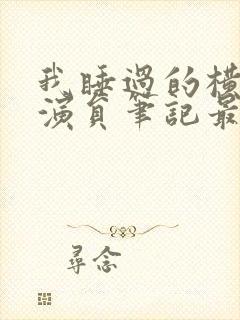 我睡過的橫
演員筆記最
尋念